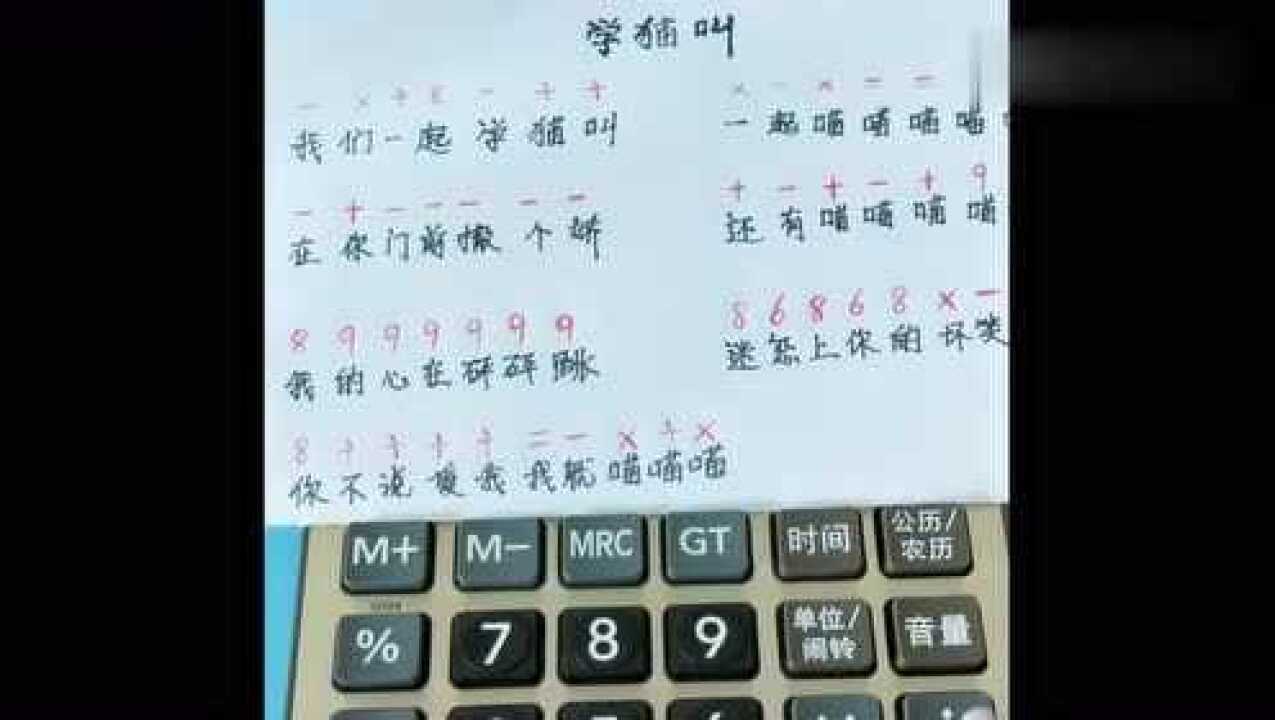 学猫叫
我们一起学猫叫
一起喵喵喵喵
- + - - - - -
+ - + - + 9
在你门前撒个娇
还有喵喵喵喵
8 9 9 9 9 9 9
8 6 8 6 8 × -
我的心在砰砰跳
迷恋上你的坏笑
你不说爱我我就喵喵喵
M+ M- MRC GT 时间 公历/农历
% 7 8 9 单位/闹铃 音量